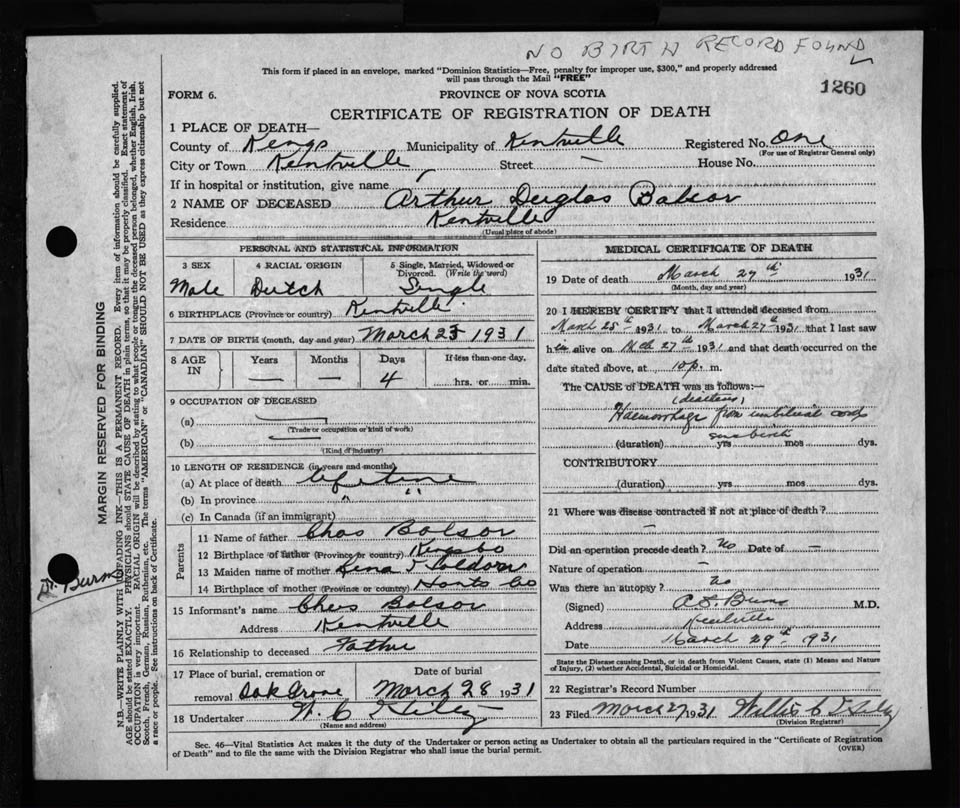 NO BIRTH RECORD FOUND
This form if placed in an envelope, marked "Dominion Statistics—Free, penalty for improper use, $300," and properly addressed
will pass through the Mail "FREE"
1260
FORM 6.
PROVINCE OF NOVA SCOTIA
CERTIFICATE OF REGISTRATION OF DEATH
1 PLACE OF DEATH—
County of Kings Municipality of Kentville Registered No. One
(For use of Registrar General only)
City or Town Kentville Street — House No.
If in hospital or institution, give name
2 NAME OF DECEASED Arthur Duglas Balsor
Residence Kentville
(Usual place of abode)
PERSONAL AND STATISTICAL INFORMATION
3 SEX
4 RACIAL ORIGIN
5 Single, Married, Widowed or Divorced. (Write the word)
Male Dutch Single
6 BIRTHPLACE (Province or country) Kentville
7 DATE OF BIRTH (month, day and year) March 23 1931
8 AGE IN
Years Months Days If less than one day,
— — 4 hrs. or min.
9 OCCUPATION OF DECEASED
(a)
(Trade or occupation or kind of work)
(b)
(Kind of industry)
10 LENGTH OF RESIDENCE (in years and months)
(a) At place of death life time
(b) In province " "
(c) In Canada (if an immigrant)
Parents
11 Name of father Chas Balsor
12 Birthplace of father (Province or country) Kings Co
13 Maiden name of mother Lena
14 Birthplace of mother (Province or country) Hants Co
15 Informant's name Chas Balsor
Address Kentville
16 Relationship to deceased Father
17 Place of burial, cremation or removal Oak Grove
Date of burial March 28 1931
18 Undertaker W. C.
(Name and address)
MEDICAL CERTIFICATE OF DEATH
19 Date of death March 27th 1931
(Month, day and year)
20 I HEREBY CERTIFY that I attended deceased from
March 25th 1931 to March 27th 1931 that I last saw
him alive on Mch 27th 1931 and that death occurred on the
date stated above, at 10 p. m.
The CAUSE of DEATH was as follows:—
Haemorrhage from umbilical cord
since birth
(duration) yrs mos dys.
CONTRIBUTORY
(duration) yrs mos dys.
21 Where was disease contracted if not at place of death?
—
Did an operation precede death? No Date of —
Nature of operation —
Was there an autopsy? No
(Signed) M.D.
Address Kentville
Date March 29th 1931
State the Disease causing Death, or in death from Violent Causes, state (1) Means and Nature
of Injury, (2) whether Accidental, Suicidal or Homicidal.
22 Registrar's Record Number
23 Filed March 27 1931 Willis C
(Division Registrar)
Sec. 46—Vital Statistics Act makes it the duty of the Undertaker or person acting as Undertaker to obtain all the particulars required in the "Certificate of Registration
of Death" and to file the same with the Division Registrar who shall issue the burial permit. (OVER)
MARGIN RESERVED FOR BINDING
N.B.—WRITE PLAINLY WITH UNFADING INK—THIS IS A PERMANENT RECORD. Every item of information should be carefully supplied.
AGE should be stated EXACTLY. PHYSICIANS should STATE CAUSE OF DEATH in plain terms, so that it may be properly classified. Exact statement of
OCCUPATION is very important. RACIAL ORIGIN will be described by stating to what people or tongue the deceased person belonged, whether English, Irish,
Scotch, French, German, Russian, Ruthenian, etc. The terms "AMERICAN" or "CANADIAN" SHOULD NOT BE USED as they express citizenship but not
a race or people. See instructions on back of Certificate.
Dr. Burns